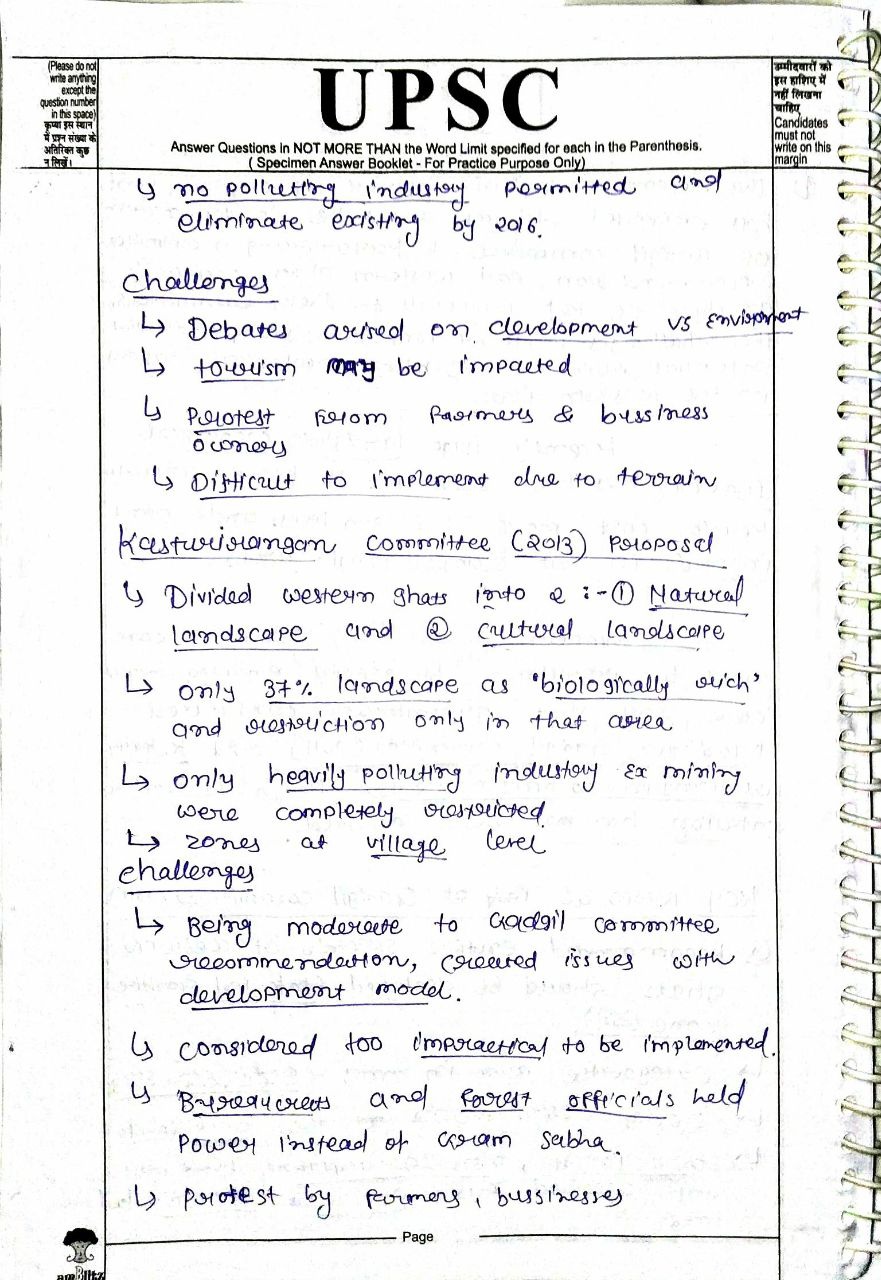 (Please do not
write anything
except the
question number
in this space)
कृपया इस स्थान
में प्रश्न संख्या के
अतिरिक्त कुछ
न लिखें।
UPSC
Answer Questions in NOT MORE THAN the Word Limit specified for each in the Parenthesis.
( Specimen Answer Booklet - For Practice Purpose Only)
उम्मीदवारों को
इस हाशिए में
नहीं लिखना
चाहिए
Candidates
must not
write on this
margin
↳ no polluting industry permitted and
eliminate existing by 2016.
Challenges
↳ Debates arised on development vs Envirnment
↳ tourism may be impacted
↳ Protest from farmers & bussiness
owners
↳ Difficult to implement due to terrain
Kasturirangan committee (2013) Proposal
↳ Divided western ghats into 2 :- ① Natural
landscape and ② cultural landscape
↳ only 37% landscape as 'biologically rich'
and restriction only in that area
↳ only heavily polluting industry Ex mining
were completely restricted.
↳ zones at village level
challenges
↳ Being moderate to Gadgil committee
recommendation, created issues with
development model.
↳ considered too impractical to be implemented.
↳ Bureaucrats and forest officials held
power instead of Gram Sabha.
↳ protest by farmers, bussinesses
Page